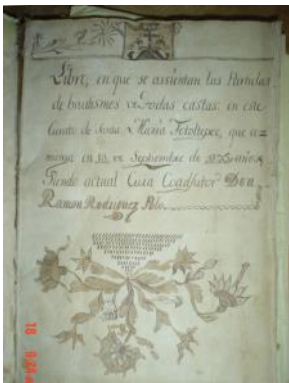 Libro, en que se assientan las Partidas
de bautismos de Todas castas: en este
Curato de Santa Maria Tototepec, que co-
mensa en 10, de Septiembre de años
Siendo actual Cura Coadjutor Don
Ramon Rodriguez Polo